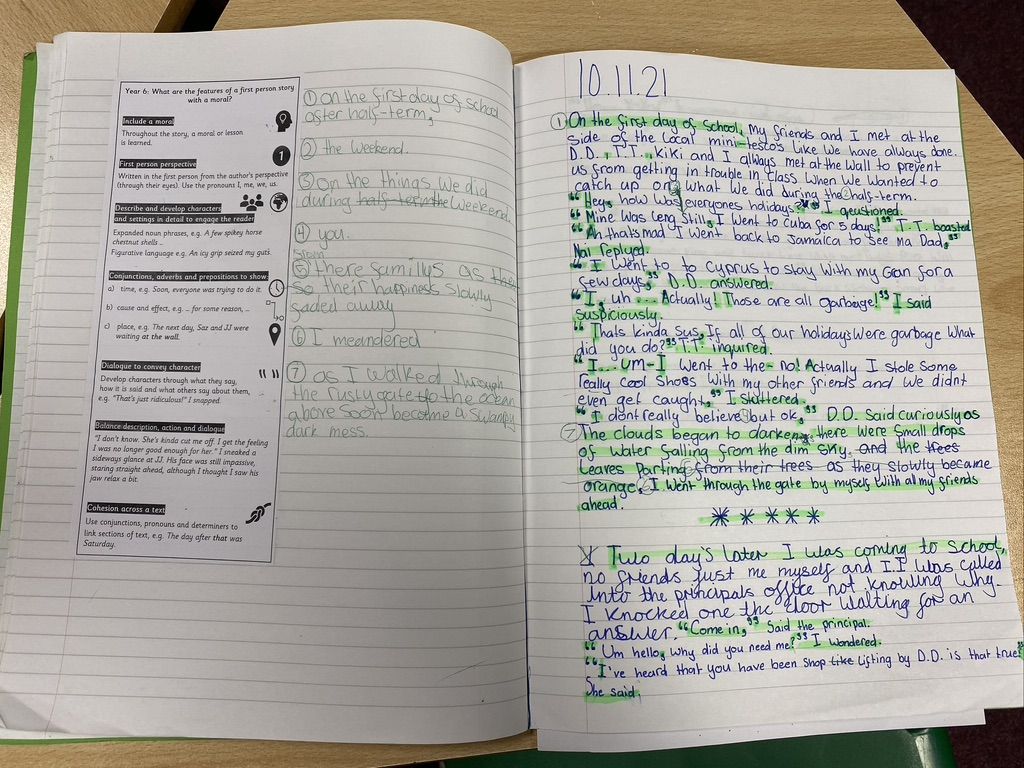 Year 6: What are the features of a first person story
with a moral?
Include a moral
Throughout the story, a moral or lesson
is learned.
First person perspective
Written in the first person from the author's perspective
(through their eyes). Use the pronouns I, me, we, us.
1
Describe and develop characters
and settings in detail to engage the reader
Expanded noun phrases, e.g. A few spikey horse
chestnut shells ..
Figurative language e.g. An icy grip seized my guts.
Conjunctions, adverbs and prepositions to show:
a) time, e.g. Soon, everyone was trying to do it.
b) cause and effect, e.g. .. for some reason, ..
c) place, e.g. The next day, Saz and JJ were
waiting at the wall.
Dialogue to convey character
Develop characters through what they say,
how it is said and what others say about them,
e.g. "That's just ridiculous!" I snapped.
Balance description, action and dialogue
"I don't know. She's kinda cut me off. I get the feeling
I was no longer good enough for her." I sneaked a
sideways glance at JJ. His face was still impassive,
staring straight ahead, although I thought I saw his
jaw relax a bit.
Cohesion across a text
Use conjunctions, pronouns and determiners to
link sections of text, e.g. The day after that was
Saturday.
① On the first day of school
after half-term,
② the weekend.
③ on the things we did
during half-term the weekend.
④ you.
⑤ there familys as
so their happiness slowly
saded away
⑥ I meandered
⑦ as I walked through
the rusty gate to the ocean
above soon become a swampy
dark mess.
10.11.21
① On the first day of school, my friends and I met at the
side of the local mini-tesco's like we have always done.
D.D., T.T., kiki and I always met at the wall to prevent
us from getting in trouble in class when we wanted to
catch up on what we did during the half-term.
"Hey, how was everyones holidays?" I qeustioned.
"Mine was leng still, I went to Cuba for 5 days!" T.T. boasted
"Ah thats mad I went back to Jamaica to see ma Dad,"
Nai replyed.
"I went to to Cyprus to stay with my Gran for a
few days," D.D. answered.
"I, uh ... Actually! Those are all garbage!" I said
suspiciously.
"Thats kinda sus, If all of our holidays were garbage what
did you do?" T.T. inquired.
"I... um-I went to the- no! Actually I stole some
really cool shoes with my other friends and we didnt
even get caught," I stuttered.
"I dont really believe but ok," D.D. said curiously as
⑦ The clouds began to darken, there were small drops
of water falling from the dim sky. and the trees
leaves parting from their trees as they slowly became
orange. I went through the gate by myself with all my friends
ahead.
* * * * *
Two day's later I was coming to school,
no friends just me myself and I. I was called
into the principals office not knowing why.
I knocked one the door waiting for an
answer. "Come in," said the principal.
"Um hello, why did you need me?" I wondered.
"I've heard that you have been shop like lifting by D.D. is that true?"
She said.